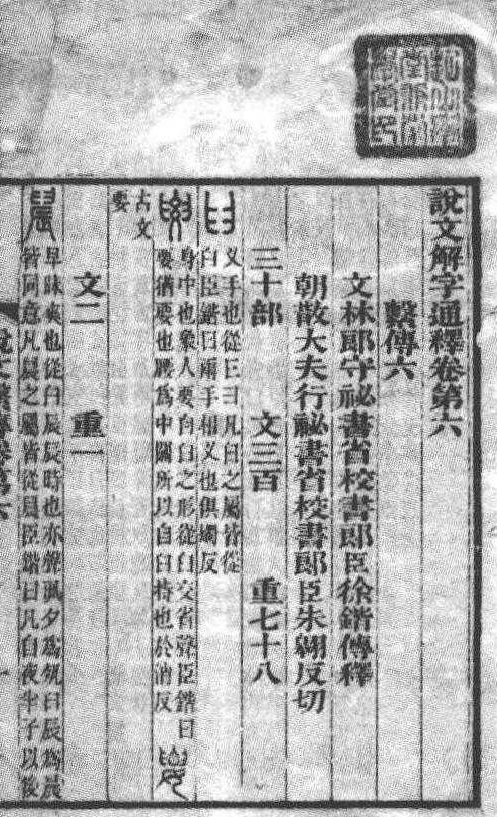 說文解字通釋卷第六
繫傳六
文林郎守祕書省校書郎臣徐鍇傳釋
朝散大夫行祕書省校書郎臣朱翺反切
三十部 文三百 重七十八
𦥑
叉手也從彐凡臼之屬皆從
臼臣鍇曰兩手相叉也俱燭反
要
身中也象人要自臼之形從臼交省聲臣鍇曰
要猶要也腰為中關所以自臼持也於消反
古文
要
文二 重一
晨
早昧爽也從臼辰辰時也亦聲丮夕為夙臼辰為晨
皆同意凡晨之屬皆從晨臣鍇曰凡自夜半子以後
說文繫傳卷第六